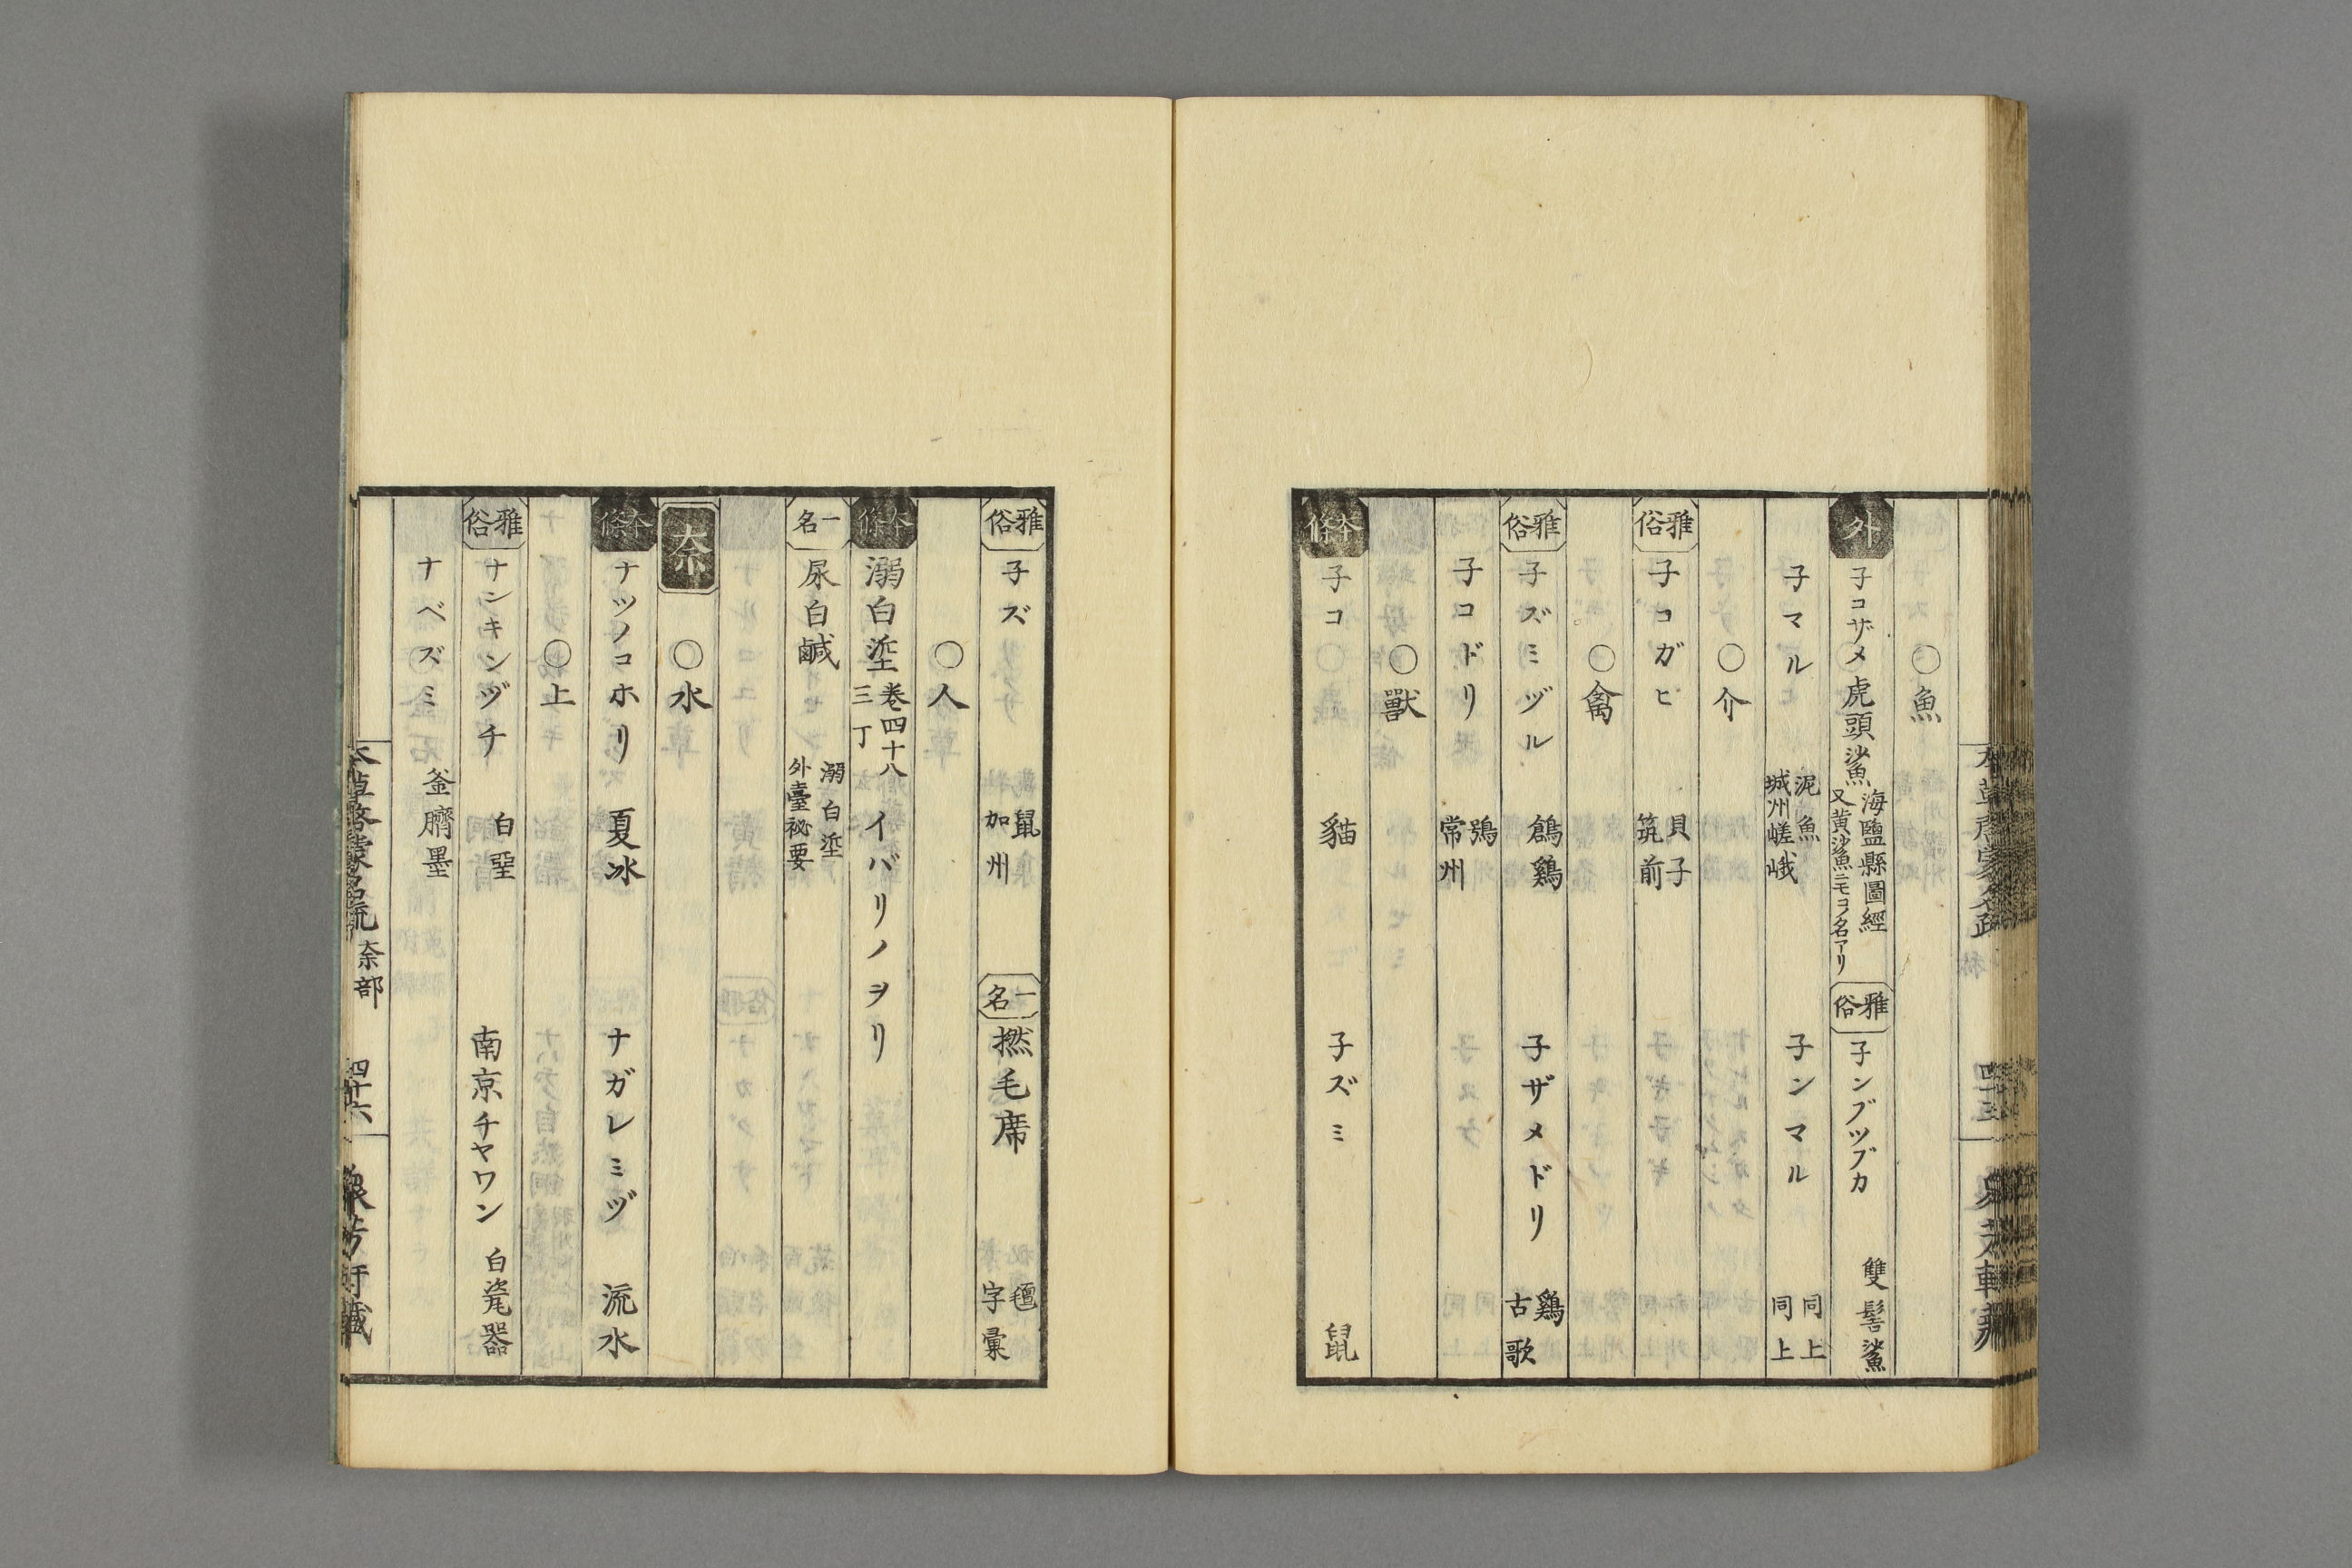 〇魚
外 子コザメ 虎頭鯊 海鹽縣圖經 又黄鯊魚ニモコノ名アリ 雅俗 子ンブツブカ 雙髻鯊
子マル 泥魚 城州嵯峨 子ンマル 同上 同上
〇介
雅俗 子コガヒ 貝子 筑前
〇禽
雅俗 子ズミヅル 鶬鷄 子ザメドリ 鷄 古歌
子コドリ 鴞 常州
〇獸
本條 子コ 貓 子ズミ 鼠
雅俗 子ズ 鼠 加州 一名 撚毛席 氊 字彙
〇人
本條 溺白垽 卷四十八 三丁 イバリノヲリ
一名 尿白鹹 溺白垽 外臺祕要
奈 〇水
本條 ナツノコホリ 夏冰 ナガレミヅ 流水
〇土
雅俗 ナンキンヅチ 白堊 南京チヤワン 白瓷器
ナベズミ 釜臍墨
奈部 四十六